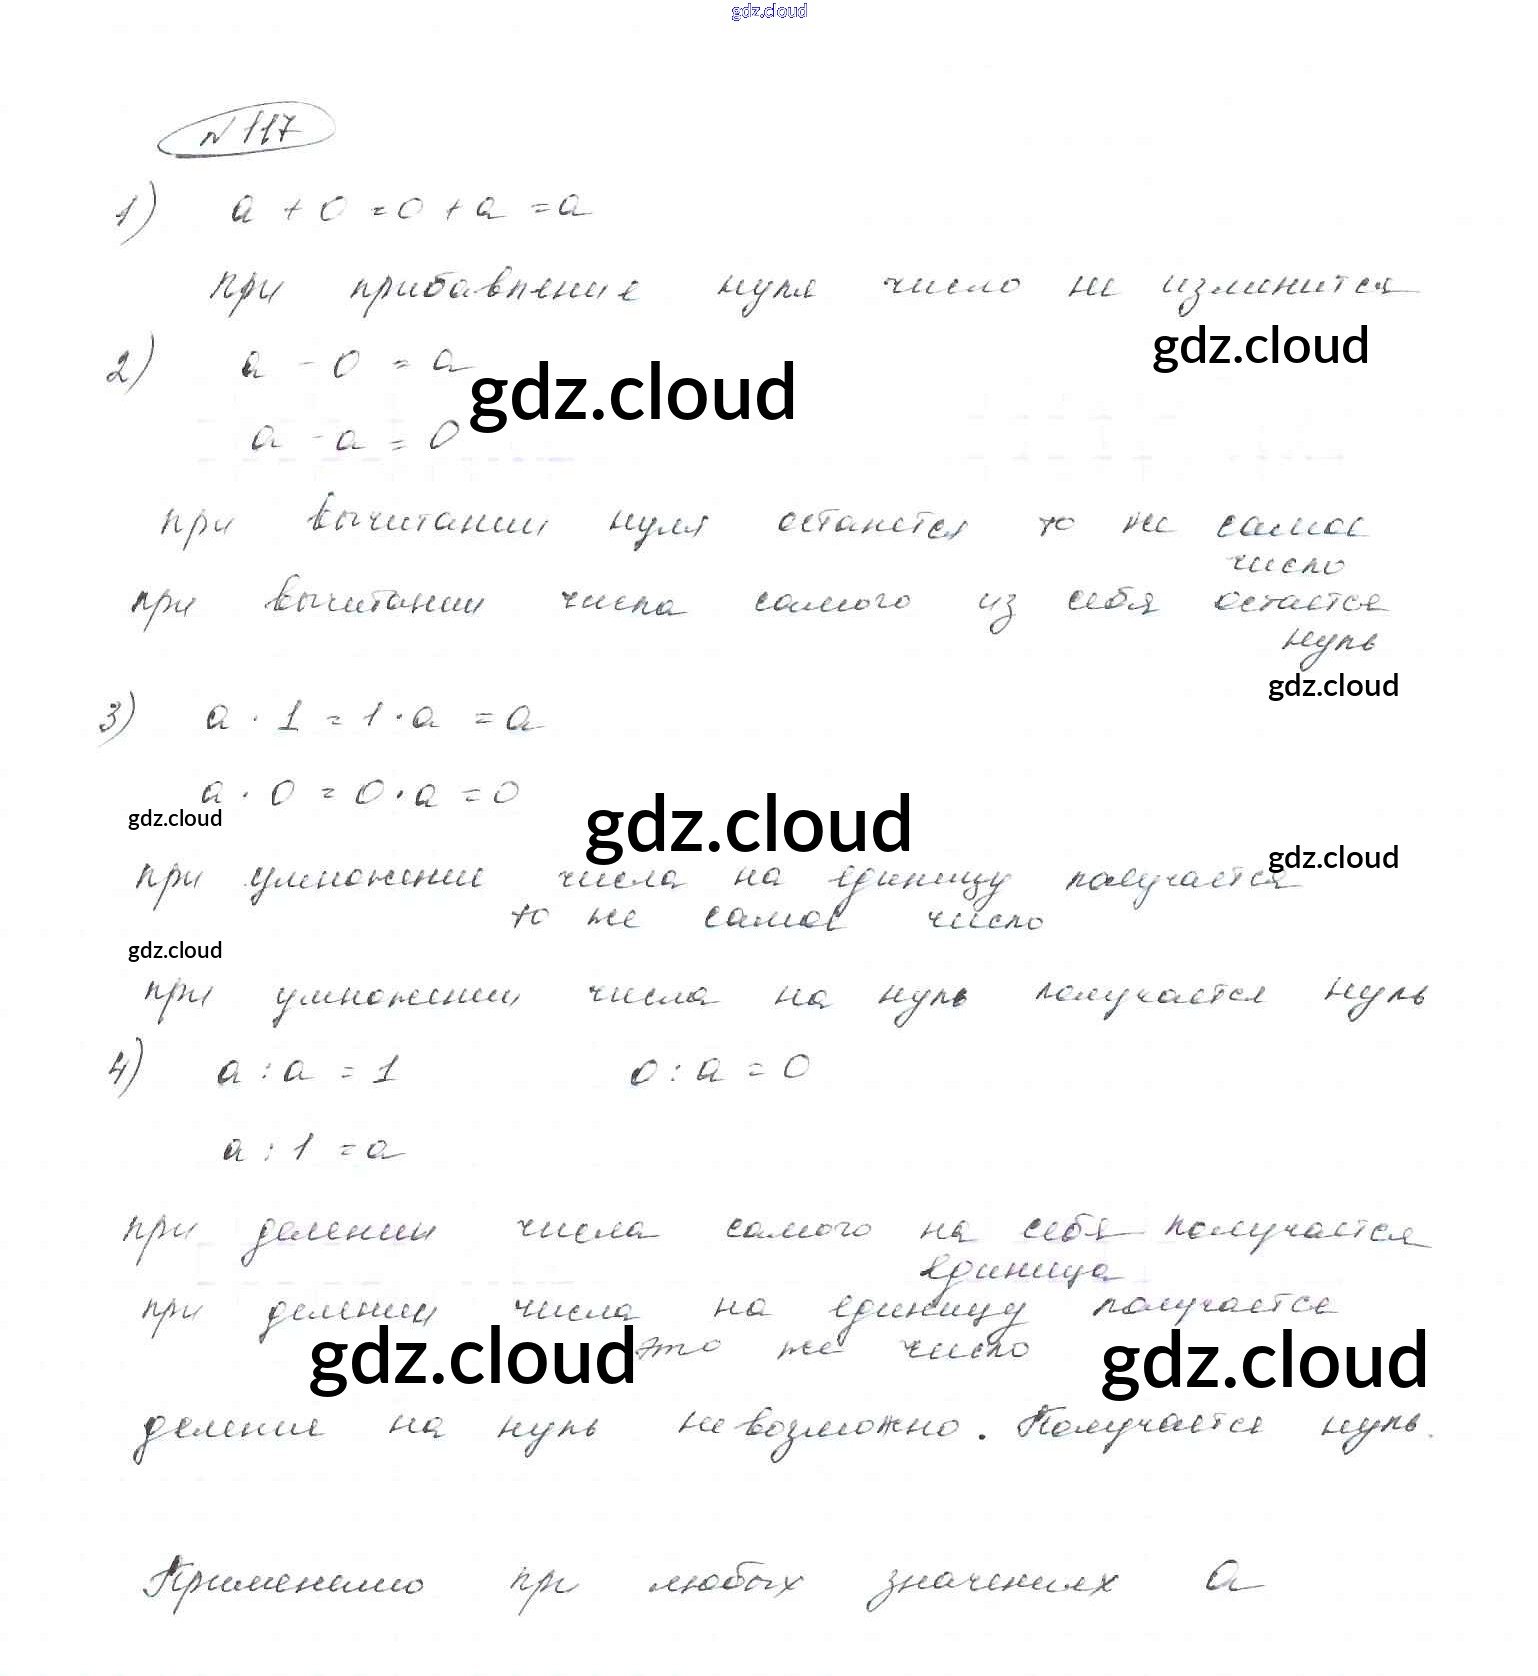 gdz.cloud
N 117
1) a + 0 = 0 + a = a
при прибавление нуля число не изменится
gdz.cloud
2) a - 0 = a
gdz.cloud
a - a = 0
при вычитании нуля останется то же самое
число
при вычитании числа самого из себя остаётся
нуль
gdz.cloud
3) a · 1 = 1 · a = a
a · 0 = 0 · a = 0
gdz.cloud
gdz.cloud
gdz.cloud
при умножение числа на единицу получается
то же самое число
gdz.cloud
при умножении числа на нуль получается нуль
4) a : a = 1 0 : a = 0
a : 1 = a
при делении числа самого на себя получается
единица
при делении числа на единицу получается
это же число
gdz.cloud
gdz.cloud
деление на нуль невозможно. Получается нуль.
Применимо при любых значениях a